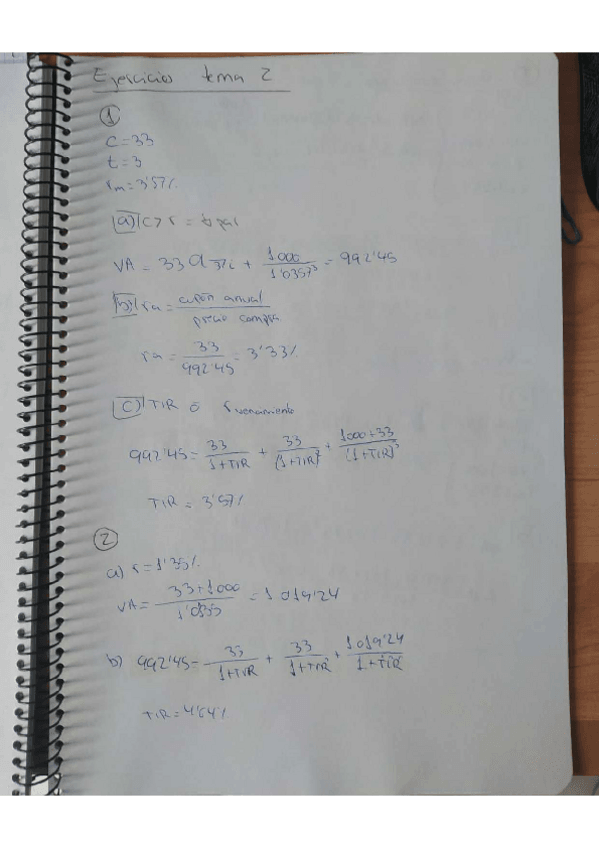 Ejercicios tema 2
1
C=33
t=3
rm=3'57%
a) C > r =
VA = 33 a 3¬i + 1000/1'0357³ = 992'45
b) ra = cupón anual/precio compra
ra = 33/992'45 = 3'33%
c) TIR ó r vencimiento
992'45 = 33/1+TIR + 33/(1+TIR)² + 1000+33/(1+TIR)³
TIR = 3'57%
2
a) r=1'35%
VA = 33+1000/1'0135 = 1019'24
b) 992'45 = 33/1+TIR + 33/1+TIR² + 1019'24/1+TIR
TIR=4'64%